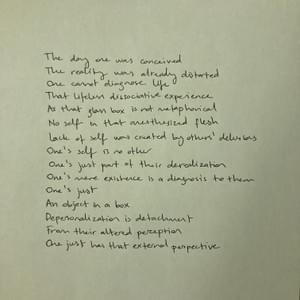 The day one was conceived
The reality was already distorted
One cannot diagnose life
That lifeless dissociative experience
As that glass box is not metaphorical
No self in that anesthetized flesh
Lack of self was created by others' delusions
One's self is no other
One's just part of their derealization
One's mere existence is a diagnosis to them
One's just
An object in a box
Depersonalization is detachment
From their altered perception
One just has that external perspective